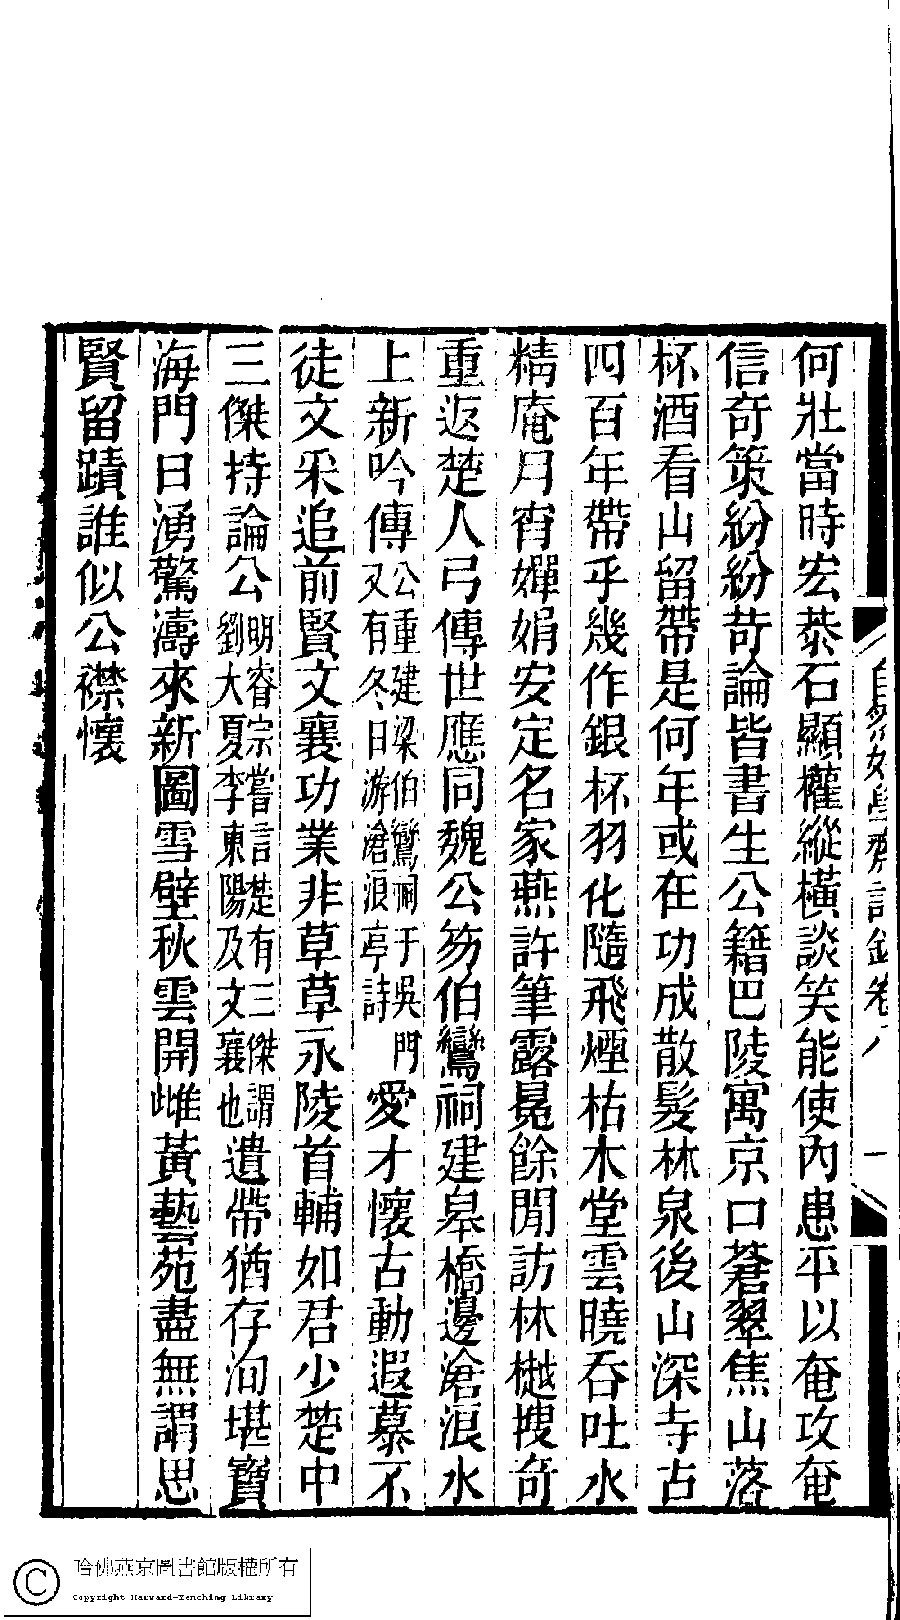 何壯當時宏恭石顯權縱橫談笑能使內患平以奄攻奄
信奇策紛紛苛論皆書生公籍巴陵寓京口蒼翠焦山落
杯酒看山留帶是何年或在功成散髮林泉後山深寺古
四百年帶乎幾作銀杯羽化隨飛煙枯木堂雲曉吞吐水
精庵月宵嬋娟安定名家燕許筆露冕餘閒訪林樾搜奇
重返楚人弓傳世應同魏公笏伯鸞祠建皋橋邊滄浪水
上新吟傳公重建梁伯鸞祠于吳門又有冬日游滄浪亭詩愛才懷古動遐慕不
徒文采追前賢文襄功業非草草永陵首輔如君少楚中
三傑持論公明睿宗嘗言楚有三傑謂劉大夏李東陽及文襄也遺帶猶存洵堪寶
海門日湧驚濤來新圖雪壁秋雲開雌黃藝苑盡無謂思
賢留蹟誰似公襟懷
自然好學齋詩鈔卷八
一
哈佛燕京圖書館版權所有
Copyright Harvard-Yenching Library